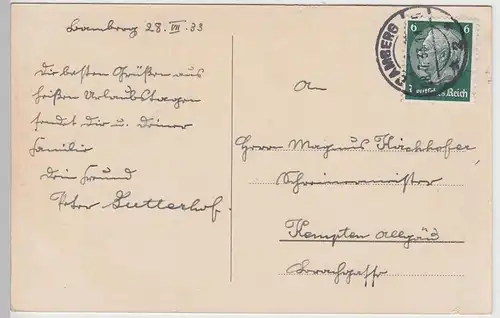 Bamberg 28. VII. 33
Die besten Grüßen aus
heißen Urlaubstagen
sendet Dir u. Deiner
Familie
Dein Freund
Peter Lutterhof.
BAMBERG
2
6 6
Deutsches Reich
An
Herrn Magnus Kirchhofer,
Schreinermeister
Kempten Allgäu